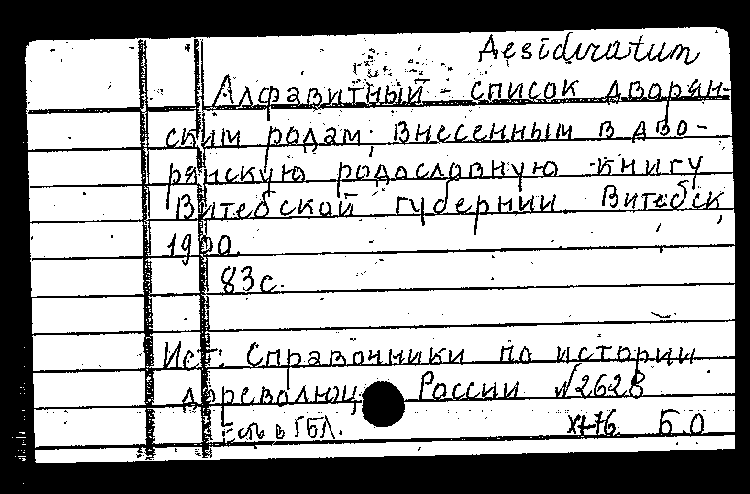 Desideratum
Алфавитный - список дворян-
ским родам, внесенным в дво-
рянскую родословную книгу
Витебской губернии. Витебск,
1900.
83с.
Ист: Справочники по истории
дореволюц. России №2628
Есть в ГБЛ. Б.О